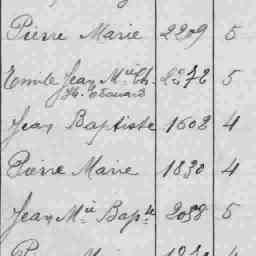 Pierre Marie 2209 5
Emile Jean M.ie Ch. 2272 5
H. Edouard
Jean Baptiste 1602 4
Pierre Marie 1830 4
Jean M.ie Bap.te 2098 5